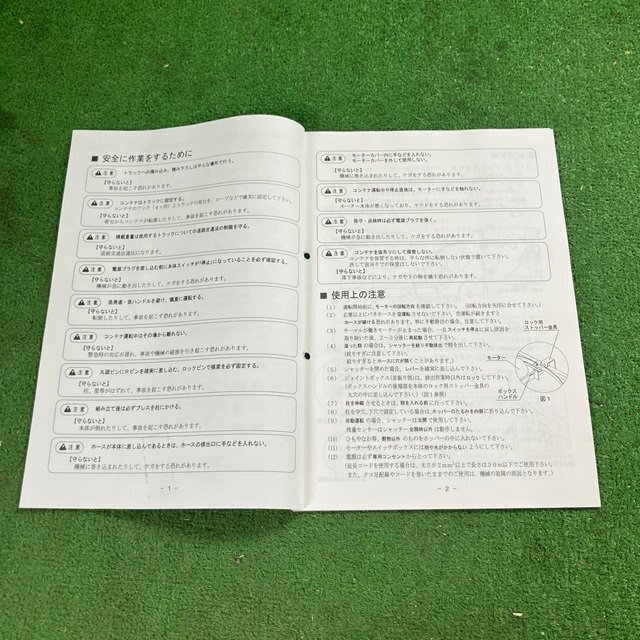 ■ 安全に作業をするために
注意 トラックへの積み込み、積み下ろしは平らな場所で行う。
【守らないと】
事故を起こす恐れがあります。
注意 コンテナはトラックに固定する。
コンテナのフック（4ヶ所）とトラックの荷台を、ロープなどで確実に固定して下さい。
【守らないと】
荷台からコンテナが転落したりして、事故を起こす恐れがあります。
注意 積載量量は使用するトラックについての道路交通法の制限を守る。
【守らないと】
道路交通法違反になります。
注意 電源プラグを差し込む前に本体スイッチが「停止」になっていることを必ず確認する。
【守らないと】
機械が急に動き出したりして、ケガをする恐れがあります。
注意 急発進・急ハンドルを避け、慎重に運転する。
【守らないと】
転倒したりして、事故を起こす恐れがあります。
注意 コンテナ運転中はその場から離れない。
【守らないと】
緊急時の対応が遅れ、事故や機械の破損を引き起こす恐れがあります。
注意 丸話ピンにRピンを確実に差し込、ロックピンで横扉を必ず固定する。
【守らないと】
柱、梁等がはずれて、事故を起こす恐れがあります。
注意 組み立て後は必ずブレスを柱にかける。
【守らないと】
本体が倒れたりして、事故を起こす恐れがあります。
注意 ホースが本体に差し込んであるときは、ホースの排出口に手などを入れない。
【守らないと】
機械に巻き込まれたりして、ケガをする恐れがあります。
- 1 -
注意 モーターカバー内に手などを入れない。
モーターカバーを外して使用しない。
【守らないと】
機械に巻き込まれたりして、ケガをする恐れがあります。
注意 コンテナ運転中や停止直後は、モーターに手などを触れない。
【守らないと】
モーター本体が熱くなっており、ヤケドをする恐れがあります。
注意 保守・点検時は必ず電源プラグを抜く。
【守らないと】
機械が急に動き出したりして、ケガをする恐れがあります。
注意 コンテナを宙吊りにして保管しない。
コンテナを保管する時は、平らな所に転倒しない状態で置いて下さい。
決して宙吊りでの保管はしないで下さい。
【守らないと】
落下事故などにより、ケガや下の物を壊す恐れがあります。
■ 使用上の注意
(1) 運転開始前に、モーターの回転方向を確認して下さい。（回転方向を矢印に合せて下さい。）
(2) 必要以上にバネホースを空運転させないで下さい。空運転が続きますと
ホースが破ける恐れがあります。特に平動排出の場合、注意して下さい。
(3) サーマルが働きモーターが止まった場合、一旦スイッチを停止に戻し原因を
取り除いた後、2～3分後に再起動させて下さい。
(4) 湿った籾の場合は、シャッターを絞り手動排出で籾を出して下さい。
（絞りすぎに注意して下さい。
絞りすぎるとホースに穴が開くことがあります。）
(5) シャッターを閉めた場合、レバーを確実に差し込んで下さい。
(6) ジョイントボックス（首振り部）は、排出作業時以外はロックして下さい。
（ボックスハンドルの後端部を本体のロック用ストッパー金具の
太穴の中に差し込んで下さい。）（図1参照）
(7) 柱を伸縮させるときは、籾を入れる前に行って下さい。
(8) 柱を中穴、下穴で固定している場合は、ホッパーのたるみを内側に折り込んで下さい。
(9) 自動運転の場合、シャッターは全開で使用して下さい。
残量センサーはシャッター全開時以外は動作しません。
(10) ひもやなわ等、穀物以外のものをホッパーの中に入れないで下さい。
(11) モーターやスイッチボックスには雨や水がかからないようにして下さい。
(12) 電源は必ず専用コンセントからとって下さい。
（延長コードを使用する場合は、太さが2mm²以上で長さは30m以下でご使用下さい。
また、タコ足配線やコードを巻いたままでのご使用は、機械の故障の原因となります。）
ロック用
ストッパー金具
モーター
ボックス
ハンドル
図1
- 2 -